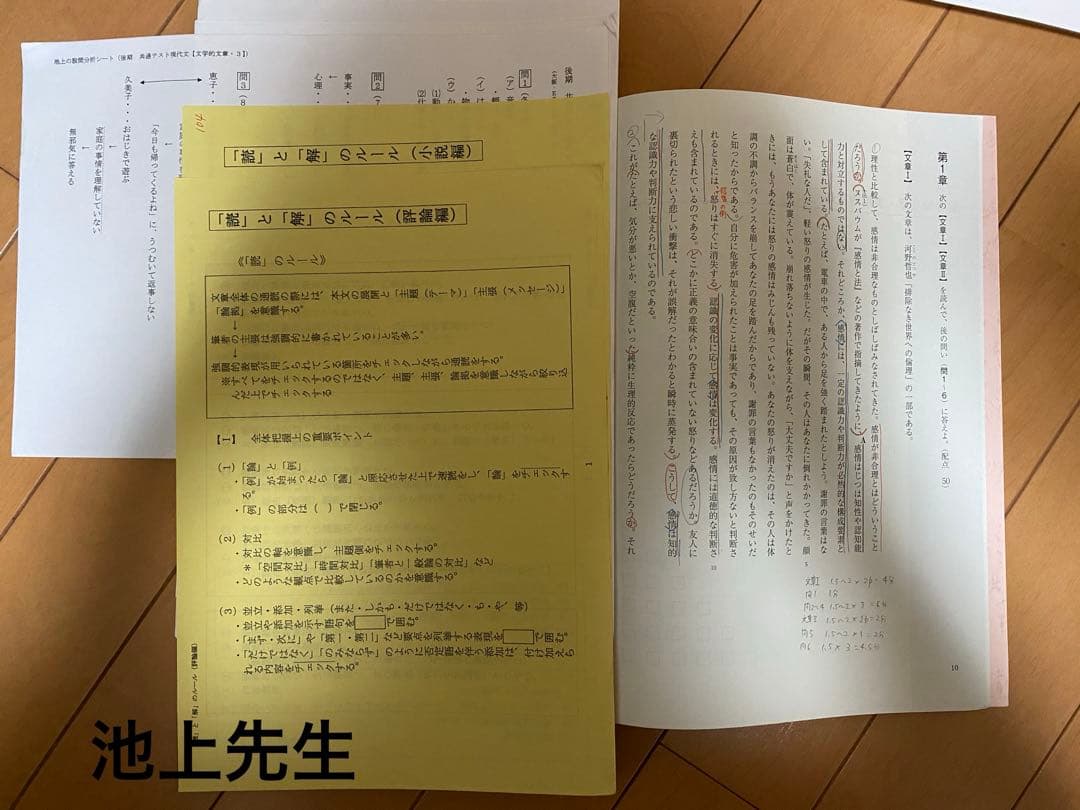 池上の設問分析シート（後期 共通テスト現代文【文学的文章・3】）
問1
(ア)
(イ)
(ウ)
(1)
(2)
問2
事実・・
心理・・
問3
恵子・・
久美子・・・おはじきで遊ぶ
「今日も帰ってくるよね」に、うつむいて返事しない
家庭の事情を理解していない
無邪気に答える
104
「読」と「解」のルール（小説編）
「読」と「解」のルール（評論編）
《「読」のルール》
文章全体の通読の際には、本文の展開と「主題（テーマ）」「主張（メッセージ）」
「論拠」を意識する。
筆者の主張は強調的に書かれていることが多い。
強調的表現が用いられている箇所をチェックしながら通読をする。
※すべてをチェックするのではなく、主題、主張、論拠を意識しながら絞り込
んだ上でチェックする
【Ⅰ】 全体把握上の重要ポイント
(1)「論」と「例」
・「例」が始まったら「論」と照応させた上で速読をし、「論」をチェックす
る。
・「例」の部分は（ ）で閉じる。
(2) 対比
・対比の軸を意識し、主題側をチェックする。
＊「空間対比」「時間対比」「筆者と一般論の対比」など
・どのような観点で比較しているのかを意識する。
(3) 並立・添加・列挙（また・しかも・だけではなく・も・や、等）
・並立や添加を示す語句を で囲む。
・「まず・次に」や「第1・第二」など要点を列挙する表現を で囲む。
・「だけではなく」「のみならず」のように否定語を伴う添加は、付け加えら
れる内容をチェックする。
1
と「解」のルール（評論編）
第1章 次の【文章Ⅰ】【文章Ⅱ】を読んで、後の問い（問1～6）に答えよ。（配点 50）
【文章Ⅰ】 次の文章は、河野哲也「排除なき世界への倫理」の一部である。
理性と比較して、感情は非合理なものとしばしばみなされてきた。感情が非合理とはどういうこと
だろうか。ヌスバウムが『感情と法』などの著作で指摘してきたように、A感情はじつは知性や認知能
力と対立するものではない。それどころか、感情には、一定の認識力や判断力が必然的な構成要素と
して含まれている。たとえば、電車の中で、ある人から足を強く踏まれたとしよう。謝罪の言葉はな
い。「失礼な人だ」。軽い怒りの感情が生じた。だがその瞬間、その人はあなたに倒れかかってきた。顔
面は蒼白で、体が震えている。崩れ落ちないように体を支えながら、「大丈夫ですか」と声をかけたと
きには、もうあなたには怒りの感情はみじんも残っていない。あなたの怒りが消えたのは、その人は体
調の不調からバランスを崩してあなたの足を踏んだからであり、謝罪の言葉もなかったのもそのせいだ
と知ったからである。自分に危害が加えられたことは事実であっても、その原因が致し方ないと判断さ
れるときには、怒りはすぐに消失する。認識の変化に応じて感情は変化する。感情には道徳的な判断さ
えも含まれているのである。どこかに正義の意味合いの含まれていない怒りなどあるだろうか。友人に
裏切られたという悲しい衝撃は、それが誤解だったとわかると瞬時に蒸発する。こうして、感情は知的
な認識力や判断力に支えられているのである。
これがたとえば、気分が悪いとか、空腹だといった純粋に生理的反応であったらどうだろうか。それ
5
10
文章Ⅰ 1.5～2×2p=4分
問1 1分
問2～4 1.5～2×3=6分
文章Ⅱ 1.5～2×1p=2分
問5 1.5～2×1=2分
問6 1.5×3=4.5分
10
池上先生